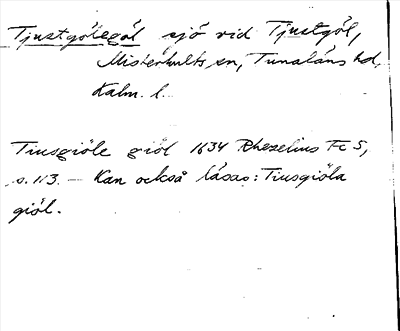 Tjustgölegöl sjö vid Tjustgöl,
Misterhults sn, Tunaläns hd,
Kalm. l.
Tiusgiöle giöl 1634 Rhezelius Fc 5,
s. 113. – Kan också läsas: Tiusgiöla
giöl.